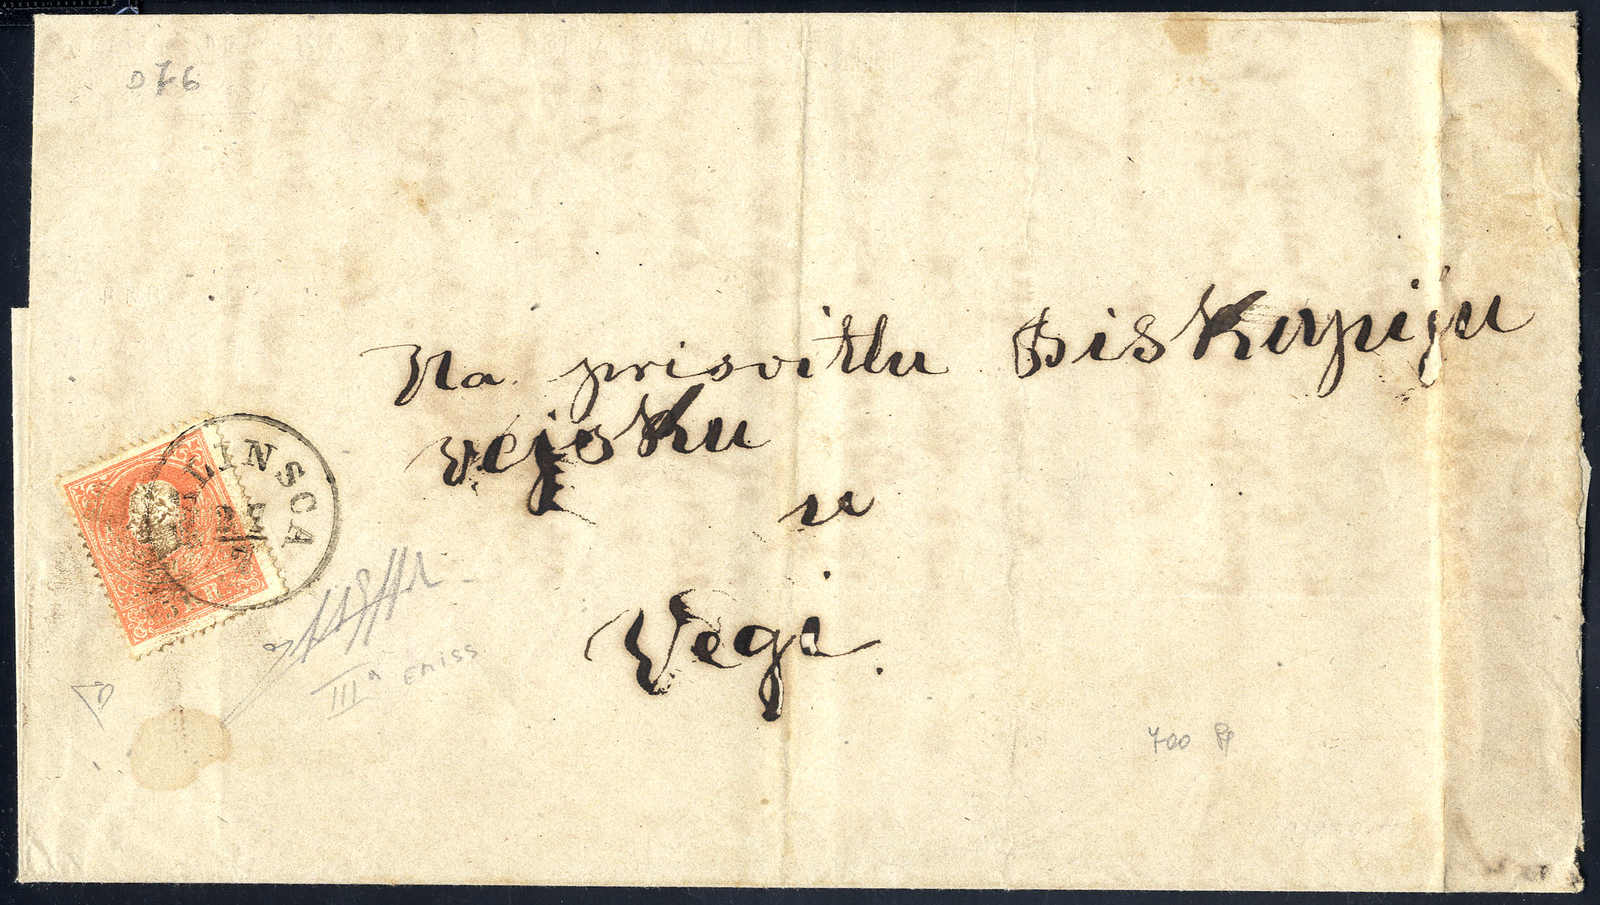 076
Na prisvitlu Biskupiju
vejsku
u
Vegi.
LINSCA
IIIa emiss
700